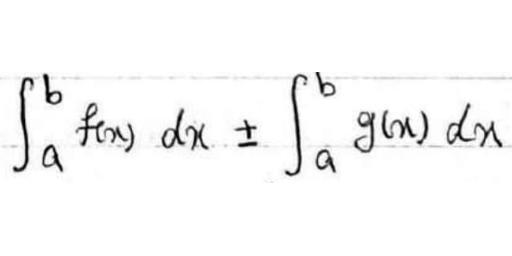 ∫_a^b f(x) dx ± ∫_a^b g(x) dx